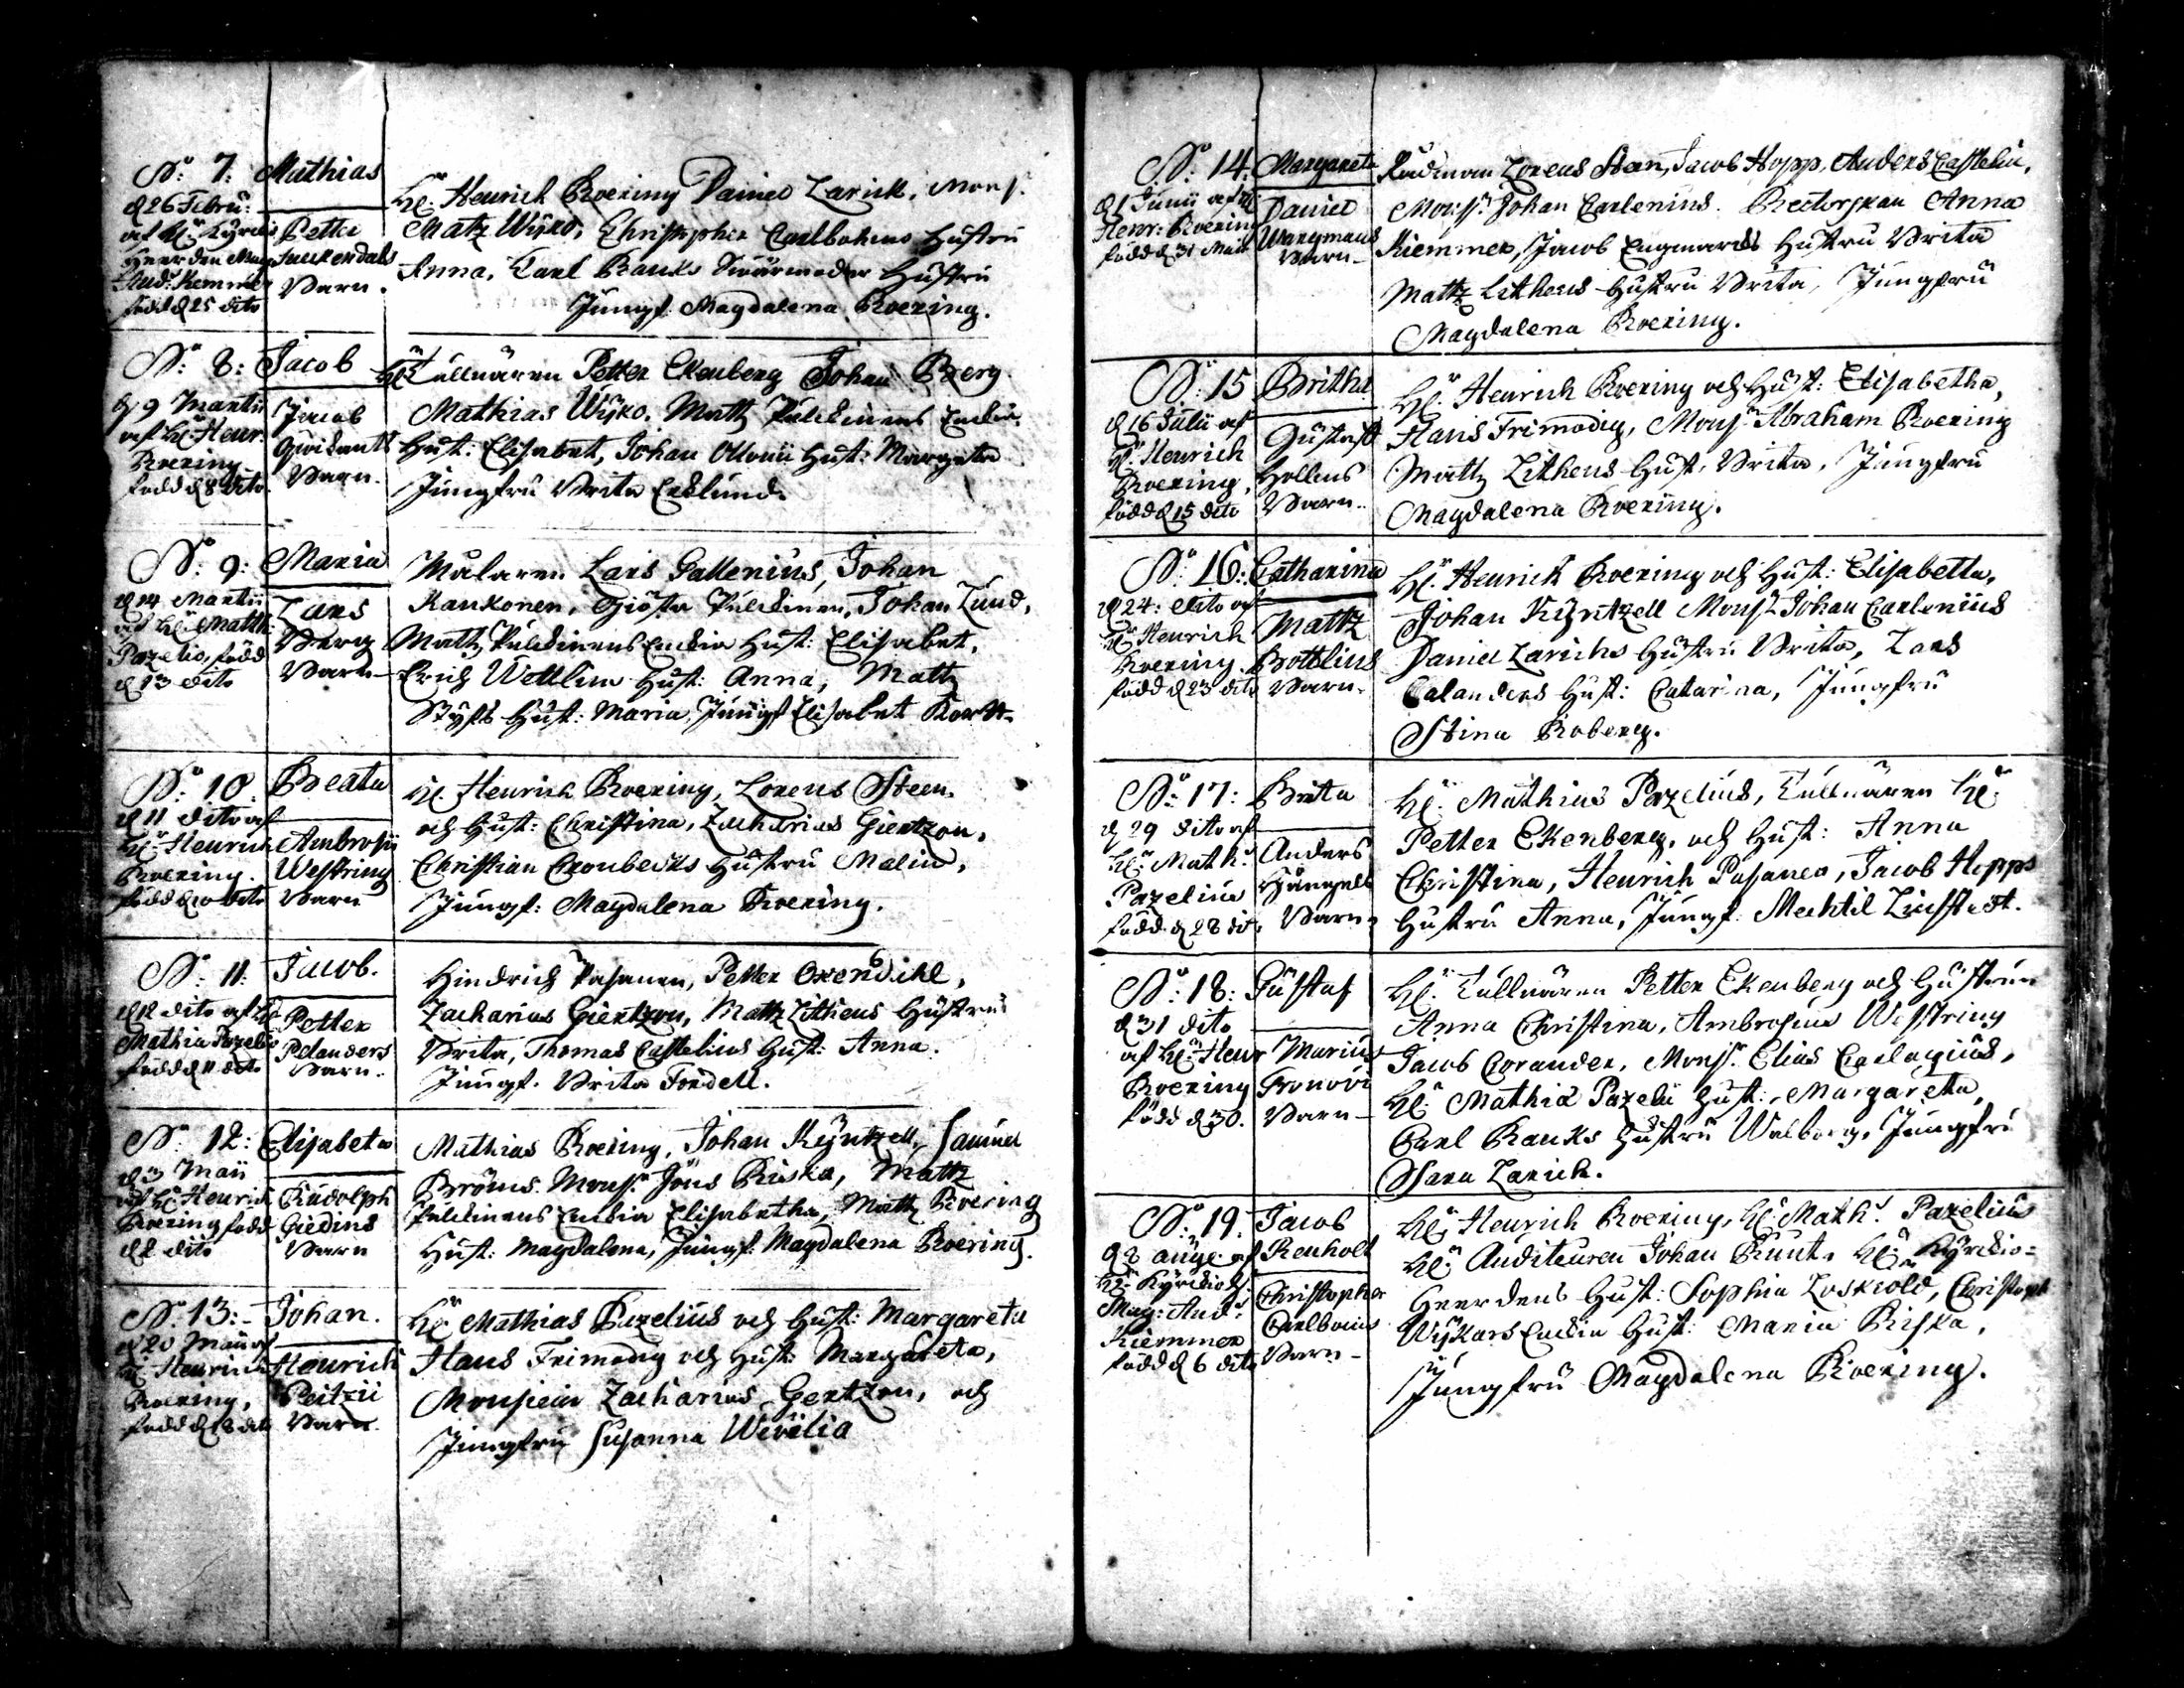 No: 7:
d 26 Febru:
af H: Kyrckio
Heerden Mag
And: Kemmer
född d 25 dito
Mathias
Petter
Juckendahls
Barn.
H: Henrich Roering Daniel Larick, Mons:
Matz Wijko, Christopher Carlbohms Hustru
Anna, Karl Ranks Swärmoder Hustru
Jungf: Magdalena Roering.
No: 8:
d 9 Martii
af H: Henr:
Roering
född d 8 dito.
Jacob
Jacob
Barn.
H: Tullnären Petter Ekenberg Johan Berg
Mathias Wijko. Mattz Pulckinens Enckia
Hust: Elisabet, Johan Ottonii Hust: Margeta
Jungfru Brita Ecklund.
No: 9:
d 14 Martii
af H: Matth:
Pazelio, född
d 13 dito
Maria
Lars
Berg
Barn
Målaren Lars Gallenius, Johan
Kaukonen, Giösta Pulckinen, Johan Lund,
Mattz Pulckinens Enckia Hust: Elisabet,
Erich Wettlins Hust: Anna, Mattz
Styfs Hust: Maria, Jungf Elisabet Kortt.
No: 10.
d 11 dito af
H: Henrich
Roering.
född d 10 dito
Beata
Ambrosii
Westring
Barn
H: Henrich Roering, Lorens Steen,
och Hust: Christina, Zacharias Giertzon,
Christian Cronbecks Hustru Malin,
Jungf: Magdalena Roering.
No: 11:
d 12 dito af H:
Mathia Pazelio
född d 11 dito
Jacob.
Petter
Pelanders
Barn.
Hindrich Pasanen, Petter Oxendihl,
Zacharias Giertzon, Mattz Litheus Hustru
Brita, Thomas Castelius Hust: Anna.
Jungf. Brita Fordell.
No: 12:
d 3 Maii
af H: Henrich
Roering född
d 2 dito
Elisabeta
Rudolph
Giedins
Barn
Mathias Roering, Johan Kyntzell, Samuel
Bröms. Mons: Jöns Riska, Mattz
Pulckinens Enckia Elisabetha, Mattz Roering
Hust: Magdalena, Jungf: Magdalena Roering.
No 13:
d 20 Maii af
H: Henrich
Roering,
född d 18 dito
Johan.
Henrich
Peitzii
Barn.
H: Mathias Pazelius och Hust: Margareta
Hans Frimodig och Hust: Margareta,
Monsieur Zacharias Gertzon, och
Jungfru Susanna Wivilia
No: 14.
d 1 Junii af H:
Henr: Roering
född d 31 Maii
Margareta
Daniel
Wargmans
Barn
Rådman Lorens Sten, Jacob Hopp, Anders Castelin,
Mons: Johan Carlenius. Rectorskan Anna
Kiemmer, Jacob Engmarcks Hustru Brita
Mattz Litheus Hustru Brita, Jungfru
Magdalena Roering.
No: 15
d 16 Julii af
H: Henrich
Roering,
född d 15 dito
Britha
Gustaf
Hollens
Barn.
H: Henrich Roering och Hust: Elisabetha,
Hans Frimodig, Mons: Abraham Roering
Mattz Litheus Hust: Brita, Jungfru
Magdalena Roering.
No: 16:
d 24: dito af
H: Henrich
Roering.
född d 23 dito
Catharina
Mattz
Bottlius
Barn.
H: Henrich Roering och Hust: Elisabetta,
Johan Kyntzell Mons: Johan Carlenius
Daniel Larichs Hustru Brita, Lars
Calanders Hust: Catarina, Jungfru
Stina Roberg.
No: 17:
d 29 dito af
H: Math:
Pazelius
född d 28 dit.
Brita
Anders
Barn
H: Mathias Pazelius, Tullnären H:
Petter Ekenberg, och Hust: Anna
Christina, Henrich Pasanen, Jacob Hopps
Hustru Anna, Jungf: Mechtil Lichstedt.
No: 18:
d 31 dito
af H: Henr
Roering
född d 30.
Gustaf
Marius
Gronovi
Barn
H: Tullnären Petter Ekenberg och Hustrun
Anna Christina, Ambrosius Westring
Jacob Corander, Mons: Elias Carlagius,
H: Mathiæ Pazelii Hust: Margareta,
Carl Ranks Hustru Walborg, Jungfru
Sara Larich.
No: 19.
d 8 Aug: af
H: Kyrckioh:
Mag: And:
Kiemmer
född d 6 dito
Jacob
Renholt
Christopher
Carlboms
Barn
H: Henrich Roering, H: Math: Pazelius
H: Auditeuren Johan Ruut, H: Kyrckio=
Heerdens Hust: Sophia Loskiöld, Christoph
Wijkars Enckia Hust: Maria Riska,
Jungfru Magdalena Roering.